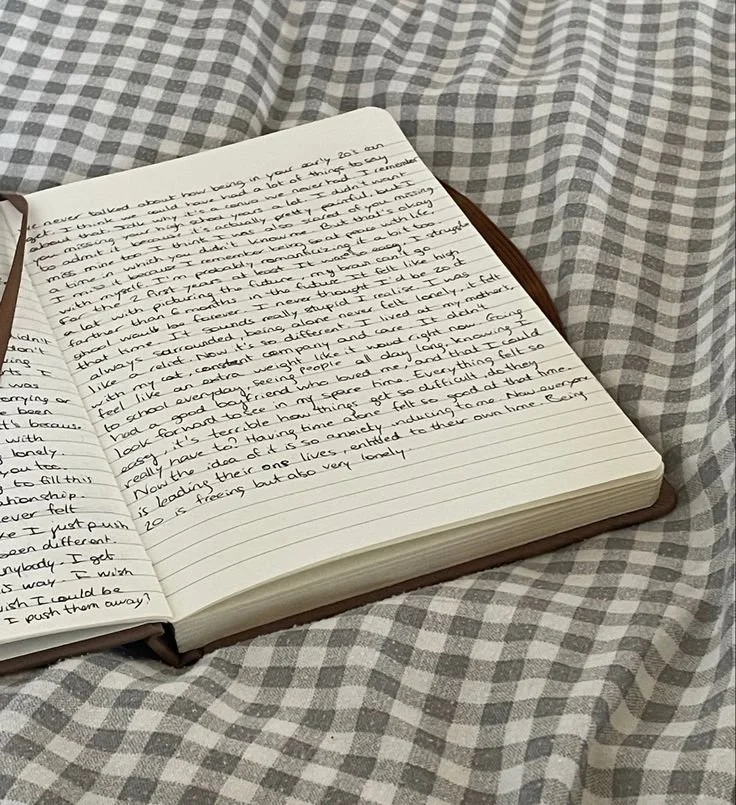 didn't
don't
ing I
was
orrying or
been
it's because
with
lonely.
you too.
to fill this
ationship.
ever felt
ke I just push
been different.
nybody. I get
is way. I wish
wish I could be
I push them away?
we never talked about how being in your early 20's can
get. I think we could have had a lot of things to say
about that. Idk why it's a convo we never had. I remember
you missing your high school years a lot. I didn't want
to admit it because it's actually pretty painful but I
miss mine too. I think I was also scared of you missing
a time in which you didn't know me. But that's okay
I miss it because I remember being so at peace with life,
with myself. I'm probably romanticizing it a bit too
for the 2 first years at least. It was so easy. I struggle
a lot with picturing the future, my brain can't go
farther than 6 months in the future. It felt like high
shool would be forever. I never thought I'd be 20,
that time. It sounds really stupid I realise. I was
always sarrounded, being alone never felt lonely, it felt
like a relief. Now it's so different. I lived at my mother's,
with my cat, constant company and care. It didn't
feel like an extra weight like it would right now. Going
to school everyday, seeing people all day long, knowing I
had a good boyfriend who loved me, and that I could
look forward to see in my spare time. Everything felt so
easy, it's terrible how things get so difficult, do they
really have to? Having time alone felt so good at that time.
Now the idea of it is so anxiety inducing to me. Now everyone
is leading their own lives, entitled to their own time. Being
20 is freeing but also very lonely.